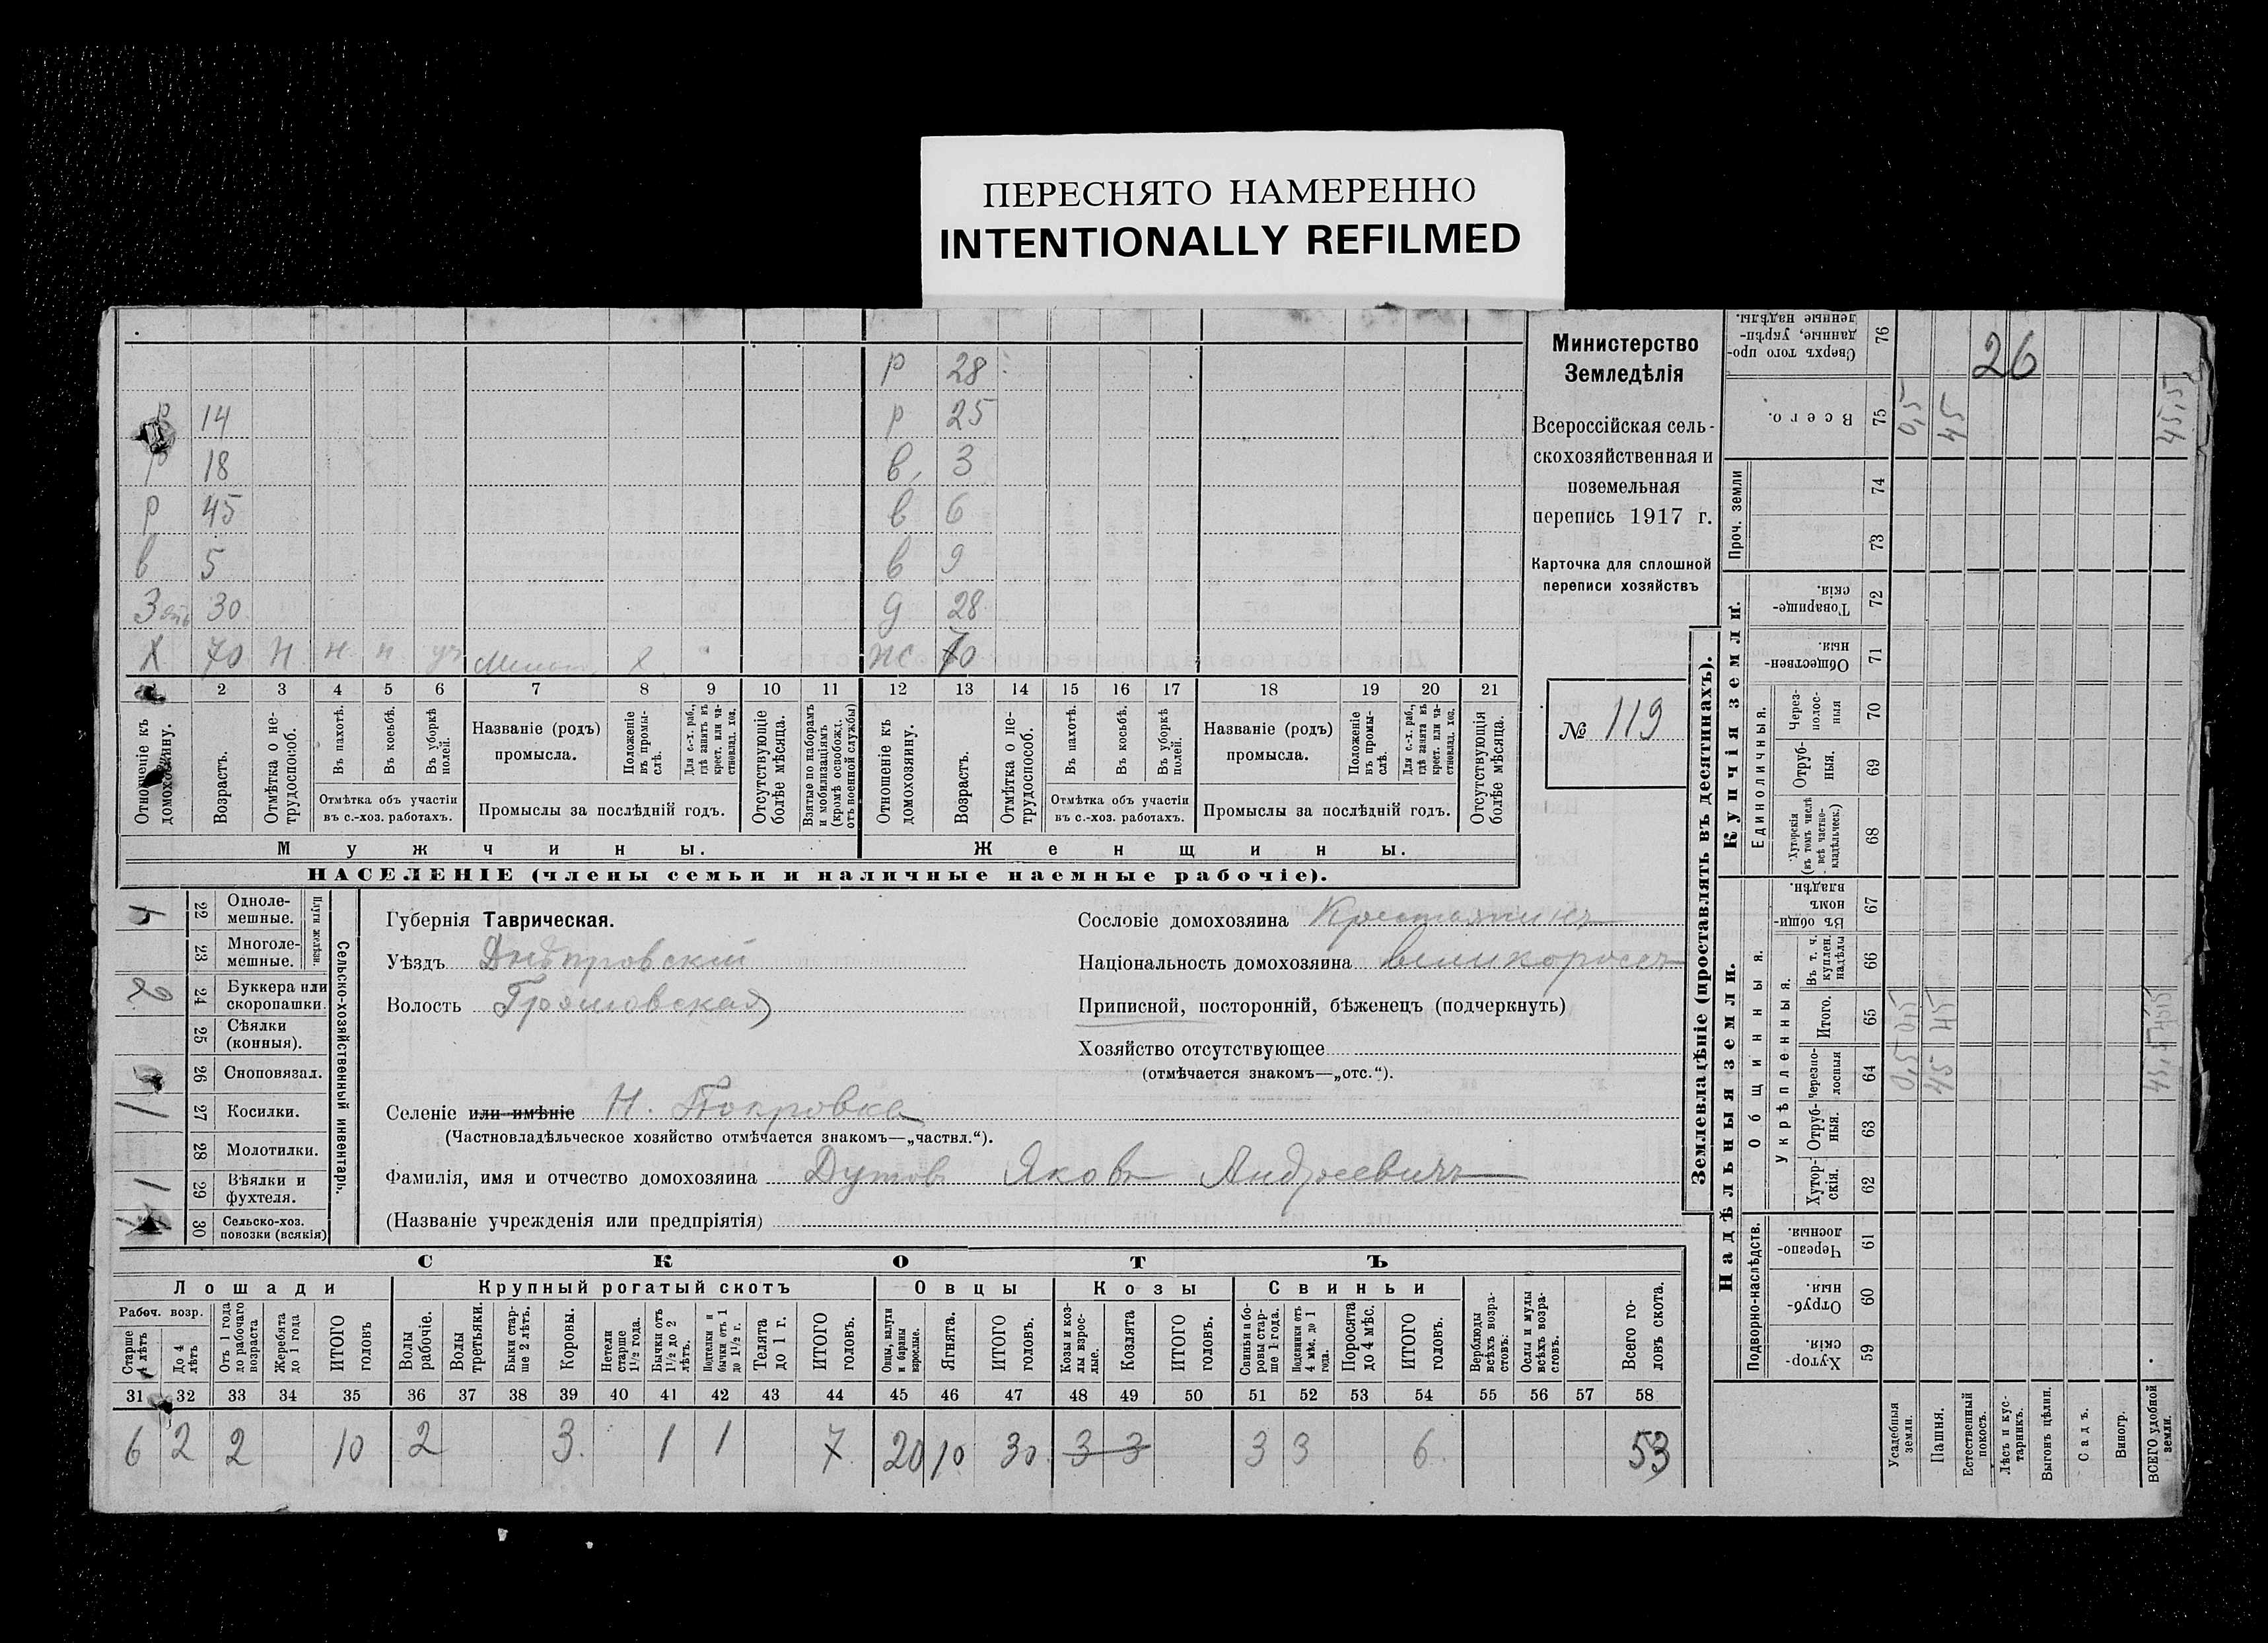 ПЕРЕСНЯТО НАМЕРЕННО
INTENTIONALLY REFILMED
р 28
р 14 р 25
р 18 в 3
р 45 в 6
в 5 в 9
Зять 30 д 28
Х 70 Н н н уч Х ж 70
2 3 4 5 6 7 8 9 10 11 12 13 14 15 16 17 18 19 20 21
Отношеніе къ домохозяину.
Возрастъ.
Отмѣтка о нетрудоспособ.
Въ пахотѣ.
Въ косьбѣ.
Въ уборкѣ полей.
Отмѣтка объ участіи
въ с.-хоз. работахъ.
Названіе (родъ)
промысла.
Положеніе въ промыслѣ.
Для с.-х. раб., гдѣ занятъ въ крест. или частновлад. хоз.
Промыслы за послѣдній годъ.
Отсутствующіе болѣе мѣсяца.
Взятые по наборамъ и мобилизаціямъ (кромѣ освобожд. отъ военной службы)
Отношеніе къ домохозяину.
Возрастъ.
Отмѣтка о нетрудоспособ.
Въ пахотѣ.
Въ косьбѣ.
Въ уборкѣ полей.
Отмѣтка объ участіи
въ с.-хоз. работахъ.
Названіе (родъ)
промысла.
Положеніе въ промыслѣ.
Для с.-х. раб., гдѣ занята въ крест. или частновлад. хоз.
Промыслы за послѣдній годъ.
Отсутствующія болѣе мѣсяца.
Мужчины. Женщины.
НАСЕЛЕНІЕ (члены семьи и наличные наемные рабочіе).
Министерство
Земледѣлія
Всероссійская сель-
скохозяйственная и
поземельная
перепись 1917 г.
Карточка для сплошной
переписи хозяйствъ
№ 119
22 Одноле-
мешные.
Плуги желѣзн.
23 Многоле-
мешные.
2 24 Буккера или
скоропашки.
25 Сѣялки
(конныя).
26 Сноповязал.
1 27 Косилки.
28 Молотилки.
1 29 Вѣялки и
фухтеля.
30 Сельско-хоз.
повозки (всякія)
Сельско-хозяйственный инвентарь.
Губернія Таврическая.
Уѣздъ Днѣпровскій
Волость Громовская
Сословіе домохозяина Крестьянинъ
Національность домохозяина великороссъ
Приписной, посторонній, бѣженецъ (подчеркнуть)
Хозяйство отсутствующее
(отмѣчается знакомъ—„отс.“).
Селеніе или имѣніе Н. Покровка
(Частновладѣльческое хозяйство отмѣчается знакомъ—„частвл.“).
Фамилія, имя и отчество домохозяина Дутовъ Яковъ Андреевичъ
(Названіе учрежденія или предпріятія)
СКОТЪ
Лошади Крупный рогатый скотъ Овцы Козы Свиньи
Рабоч. возр.
Старше 4 лѣтъ
До 4 лѣтъ
Отъ 1 года до рабочаго возраста
Жеребята до 1 года
ИТОГО головъ
Волы рабочіе.
Волы третьяки.
Быки старше 2 лѣтъ.
Коровы.
Нетели старше 1½ года.
Бычки отъ 1½ до 2 лѣтъ.
Подтелки и бычки отъ 1 до 1½ г.
Телята до 1 г.
ИТОГО головъ.
Овцы, валухи и бараны взрослые.
Ягнята.
ИТОГО головъ.
Козы и козлы взрослые.
Козлята
ИТОГО головъ.
Свиньи и боровы старше 1 года.
Подсвинки отъ 4 мѣс. до 1 года.
Поросята до 4 мѣс.
ИТОГО головъ.
Верблюды всѣхъ возрастовъ.
Ослы и мулы всѣхъ возрастовъ.
Всего головъ скота.
31 32 33 34 35 36 37 38 39 40 41 42 43 44 45 46 47 48 49 50 51 52 53 54 55 56 57 58
6 2 2 10 2 3 1 1 7 20 10 30 3 3 3 3 6 53
Землевладѣніе (проставлять въ десятинахъ).
Надѣльныя земли. Купчія земли. Проч. земли
Подворно-наслѣдств.
Общинныя.
Укрѣпленныя.
Единоличныя.
Сверхъ того проданные, укрѣпленные надѣлы. 76 26
Всего. 75 0,5 45 45,5
74
73
Товарищескія. 72
Общественныя. 71
Черезполосныя 70
Отрубныя. 69
Хуторскія (въ томъ числѣ всѣ частновладѣльческ.) 68
Въ общинномъ владѣн. 67
Въ т. ч. куплен. надѣлы 66
Итого. 65 0,5 45 45,5
Черезполосныя 64 0,5 45 45,5
Отрубныя. 63
Хуторскія. 62
Черезполосныя. 61
Отрубныя. 60
Хуторскія. 59
Усадебныя земли.
Пашня.
Естественный покосъ.
Лѣсъ и кустарникъ.
Выгонъ цѣлин.
Садъ.
Виногр.
ВСЕГО удобной земли.